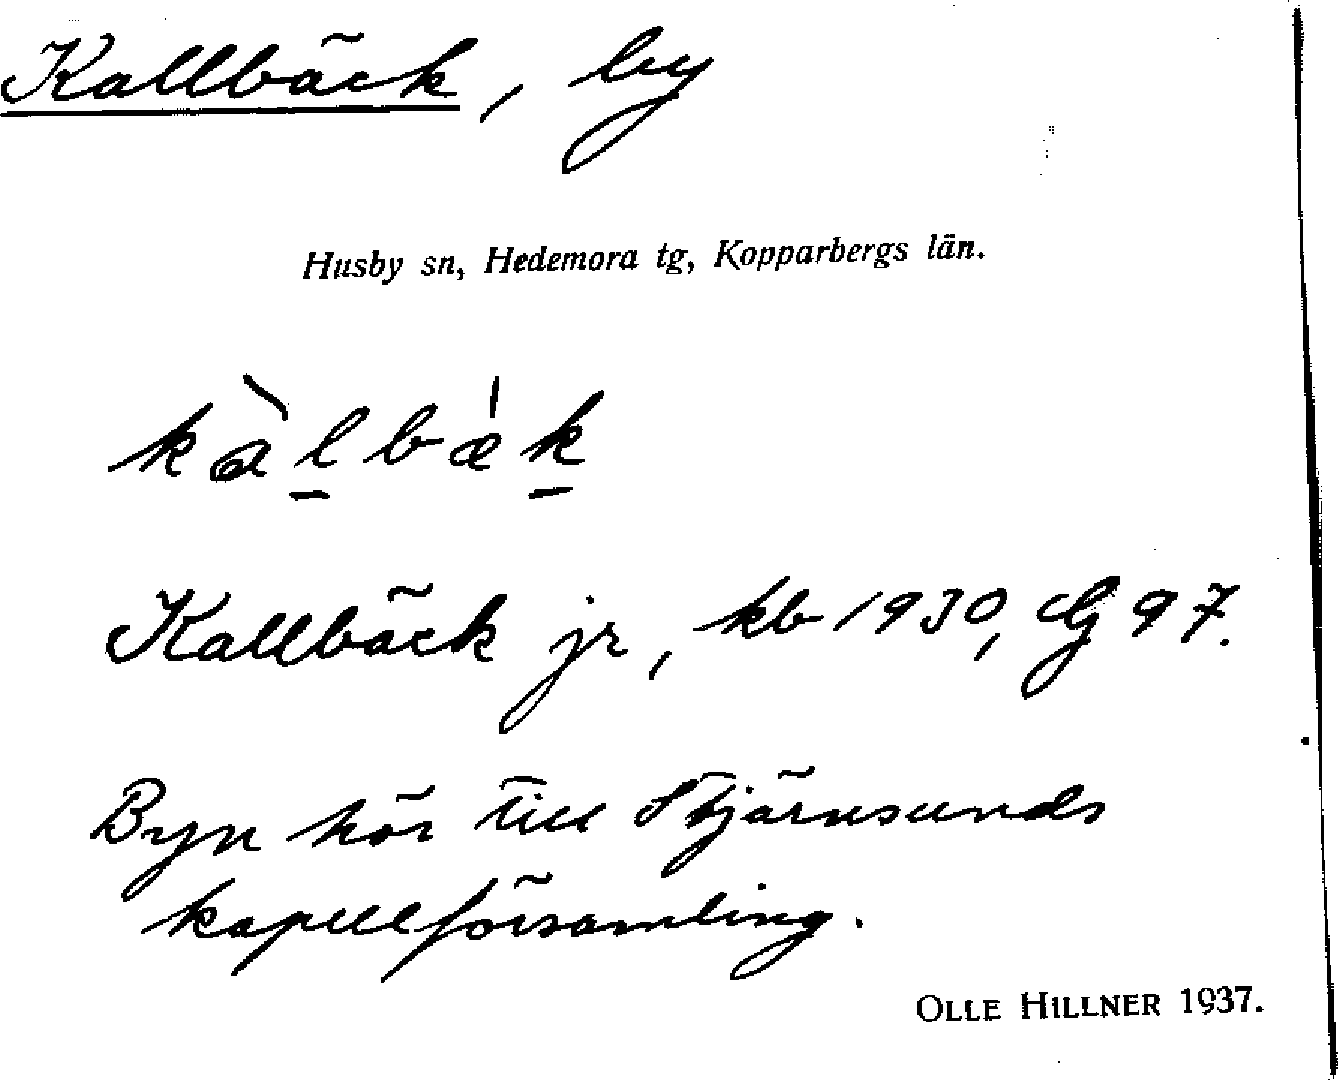 Kallbäck, by
Husby sn, Hedemora tg, Kopparbergs län.
kàl̠bæ̍k̠
Kallbäck jr, kb 1930, G 97.
Byn hör till Stjärnsunds
kapellförsamling.
OLLE HILLNER 1937.